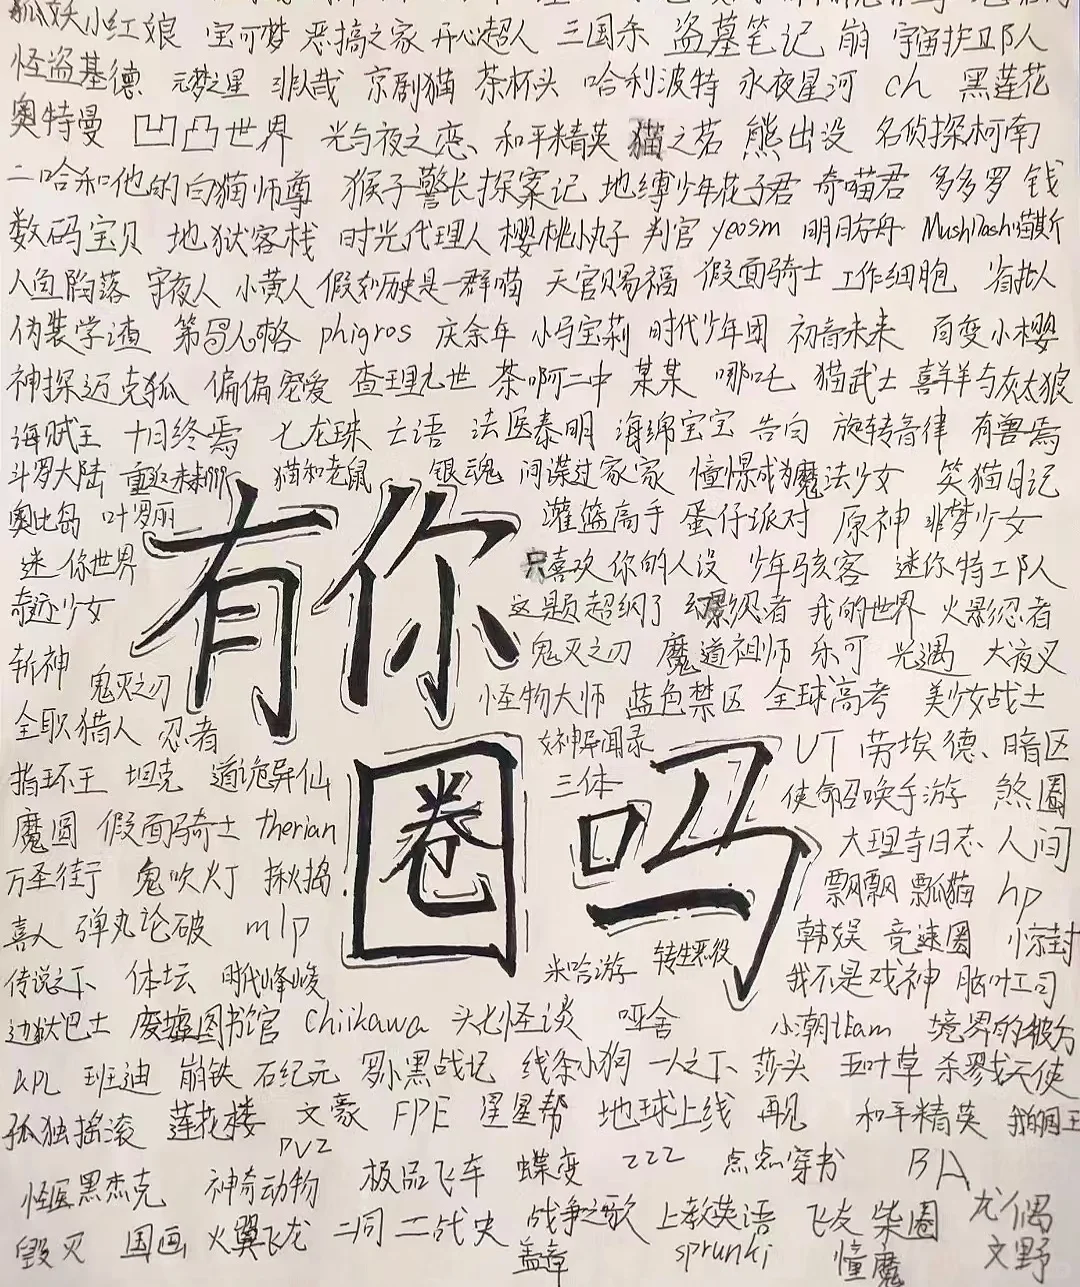 狐妖小红娘 宝可梦 恶搞之家 开心超人 三国杀 盗墓笔记 崩 宇宙护卫队
怪盗基德 元梦之星 非人哉 京剧猫 茶杯头 哈利波特 永夜星河 ch 黑莲花
奥特曼 凹凸世界 光与夜之恋 和平精英 猫之茗 熊出没 名侦探柯南
二哈和他的白猫师尊 猴子警长探案记 地缚少年花子君 奇喵君 多多罗 钱
数码宝贝 地狱客栈 时光代理人 樱桃小丸子 判官 yeosm 明日方舟 MushDash喵斯
人鱼陷落 守夜人 小黄人 假如历史是一群喵 天官赐福 假面骑士 工作细胞 省拟人
伪装学渣 第五人格 phigros 庆余年 小马宝莉 时代少年团 初音未来 百变小樱
神探迈克狐 偏偏宠爱 查理九世 茶啊二中 某某 哪吒 猫武士 喜羊羊与灰太狼
海贼王 十日终焉 七龙珠 亡语 法医秦明 海绵宝宝 告白 旋转音律 有兽焉
斗罗大陆 重返未来1999 猫和老鼠 银魂 间谍过家家 憧憬成为魔法少女 笑猫日记
奥比岛 叶罗丽 灌篮高手 蛋仔派对 原神 非梦少女
迷你世界 只喜欢你的人设 少年骇客 迷你特工队
奇迹少女 这题超纲了 忍者 我的世界 火影忍者
斩神 鬼灭之刃 鬼灭之刃 魔道祖师 乐可 光遇 犬夜叉
有你
全职猎人 忍者 怪物大师 蓝色禁区 全球高考 美少女战士
指环王 坦克 道诡异仙 女神异闻录 三体 UT 劳埃德 暗区
使命召唤手游 煞圈
魔圆 假面骑士 therian 大理寺日志 人间
圈吗
万圣街 鬼吹灯 揪捣 飘飘 瓢猫 hp
喜人 弹丸论破 mlp 韩娱 竞速圈 惊封
传说之下 体坛 时代峰峻 米哈游 转生恶役 我不是戏神 脑叶公司
边狱巴士 废墟图书馆 Chiikawa 头七怪谈 哑舍 小潮team 境界的彼方
KPL 班迪 崩铁 石纪元 罗小黑战记 线条小狗 一人之下 莎头 五叶草 杀戮天使
孤独摇滚 莲花楼 文豪 FPE 星星帮 地球上线 再见 和平精英 我的国王
PVZ
怪医黑杰克 神奇动物 极品飞车 蝶变 zzz 点点穿书 BA
毁灭 国画 火翼飞龙 二同 二战史 战争之歌 上教英语 飞友 柴圈 龙偶
盖章 sprunki 憧魔 文野